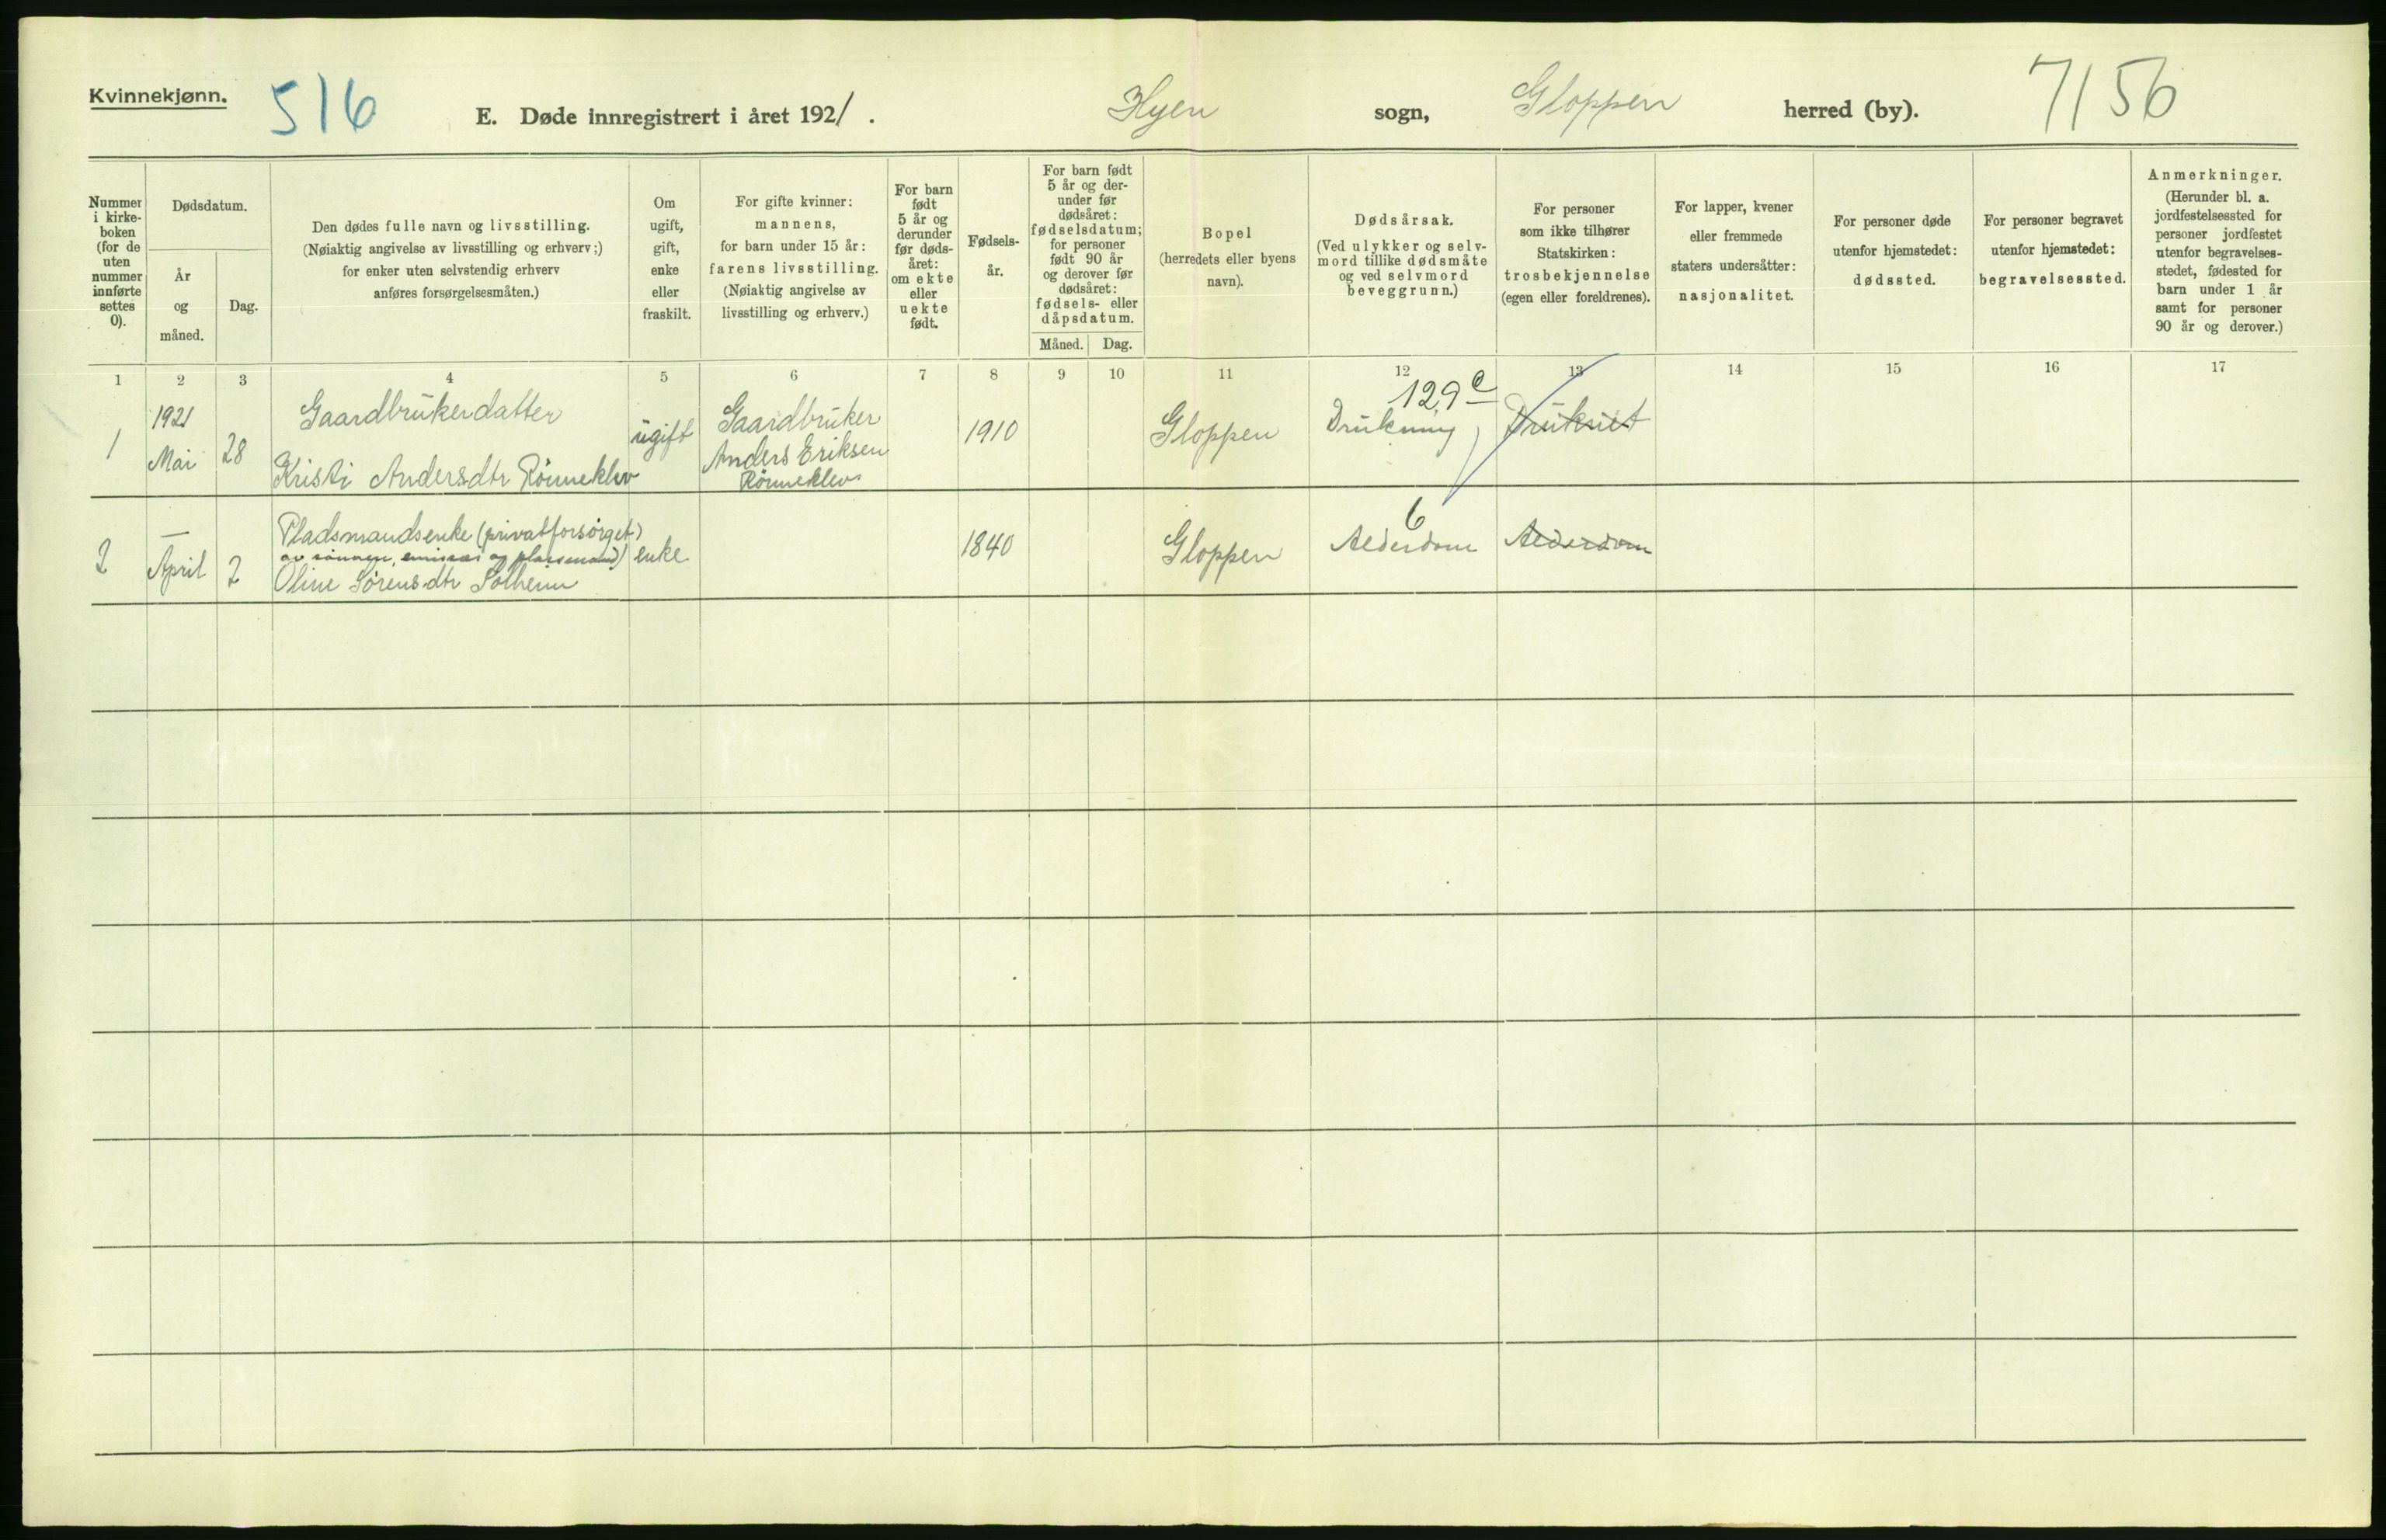 Kvinnekjønn.
516
E. Døde innregistrert i året 1921.
Hyen sogn, Gloppen herred (by).
7156
Nummer
i kirke-
boken
(for de
uten
nummer
innførte
settes
0).
Dødsdatum.
År
og
måned.
Dag.
Den dødes fulle navn og livsstilling.
(Nøiaktig angivelse av livsstilling og erhverv;)
for enker uten selvstendig erhverv
anføres forsørgelsesmåten.)
Om
ugift,
gift,
enke
eller
fraskilt.
For gifte kvinner:
mannens,
for barn under 15 år:
farens livsstilling.
(Nøiaktig angivelse av
livsstilling og erhverv.)
For barn
født
5 år og
derunder
før døds-
året:
om ekte
eller
uekte
født.
Fødsels-
år.
For barn født
5 år og der-
under før
dødsåret:
fødselsdatum;
for personer
født 90 år
og derover før
dødsåret:
fødsels- eller
dåpsdatum.
Måned. Dag.
Bopel
(herredets eller byens
navn).
Dødsårsak.
(Ved ulykker og selv-
mord tillike dødsmåte
og ved selvmord
beveggrunn.)
For personer
som ikke tilhører
Statskirken:
trosbekjennelse
(egen eller foreldrenes).
For lapper, kvener
eller fremmede
staters undersåtter:
nasjonalitet.
For personer døde
utenfor hjemstedet:
dødssted.
For personer begravet
utenfor hjemstedet:
begravelsessted.
Anmerkninger.
(Herunder bl. a.
jordfestelsessted for
personer jordfestet
utenfor begravelses-
stedet, fødested for
barn under 1 år
samt for personer
90 år og derover.)
1 2 3 4 5 6 7 8 9 10 11 12 13 14 15 16 17
1
1921
Mai
28
Gaardbrukerdatter
Kristi Andersdtr Rönneklev
ugift
Gaardbruker
Anders Eriksen
Rönneklev
1910
Gloppen
129 c
Drukning
Druknet
2
—
April
2
Pladsmandsenke (privatforsörget)
av sönnen, emissær og plassmand)
Oline Sørensdtr Solheim
enke
1840
Gloppen
6
Alderdom
Alderdom